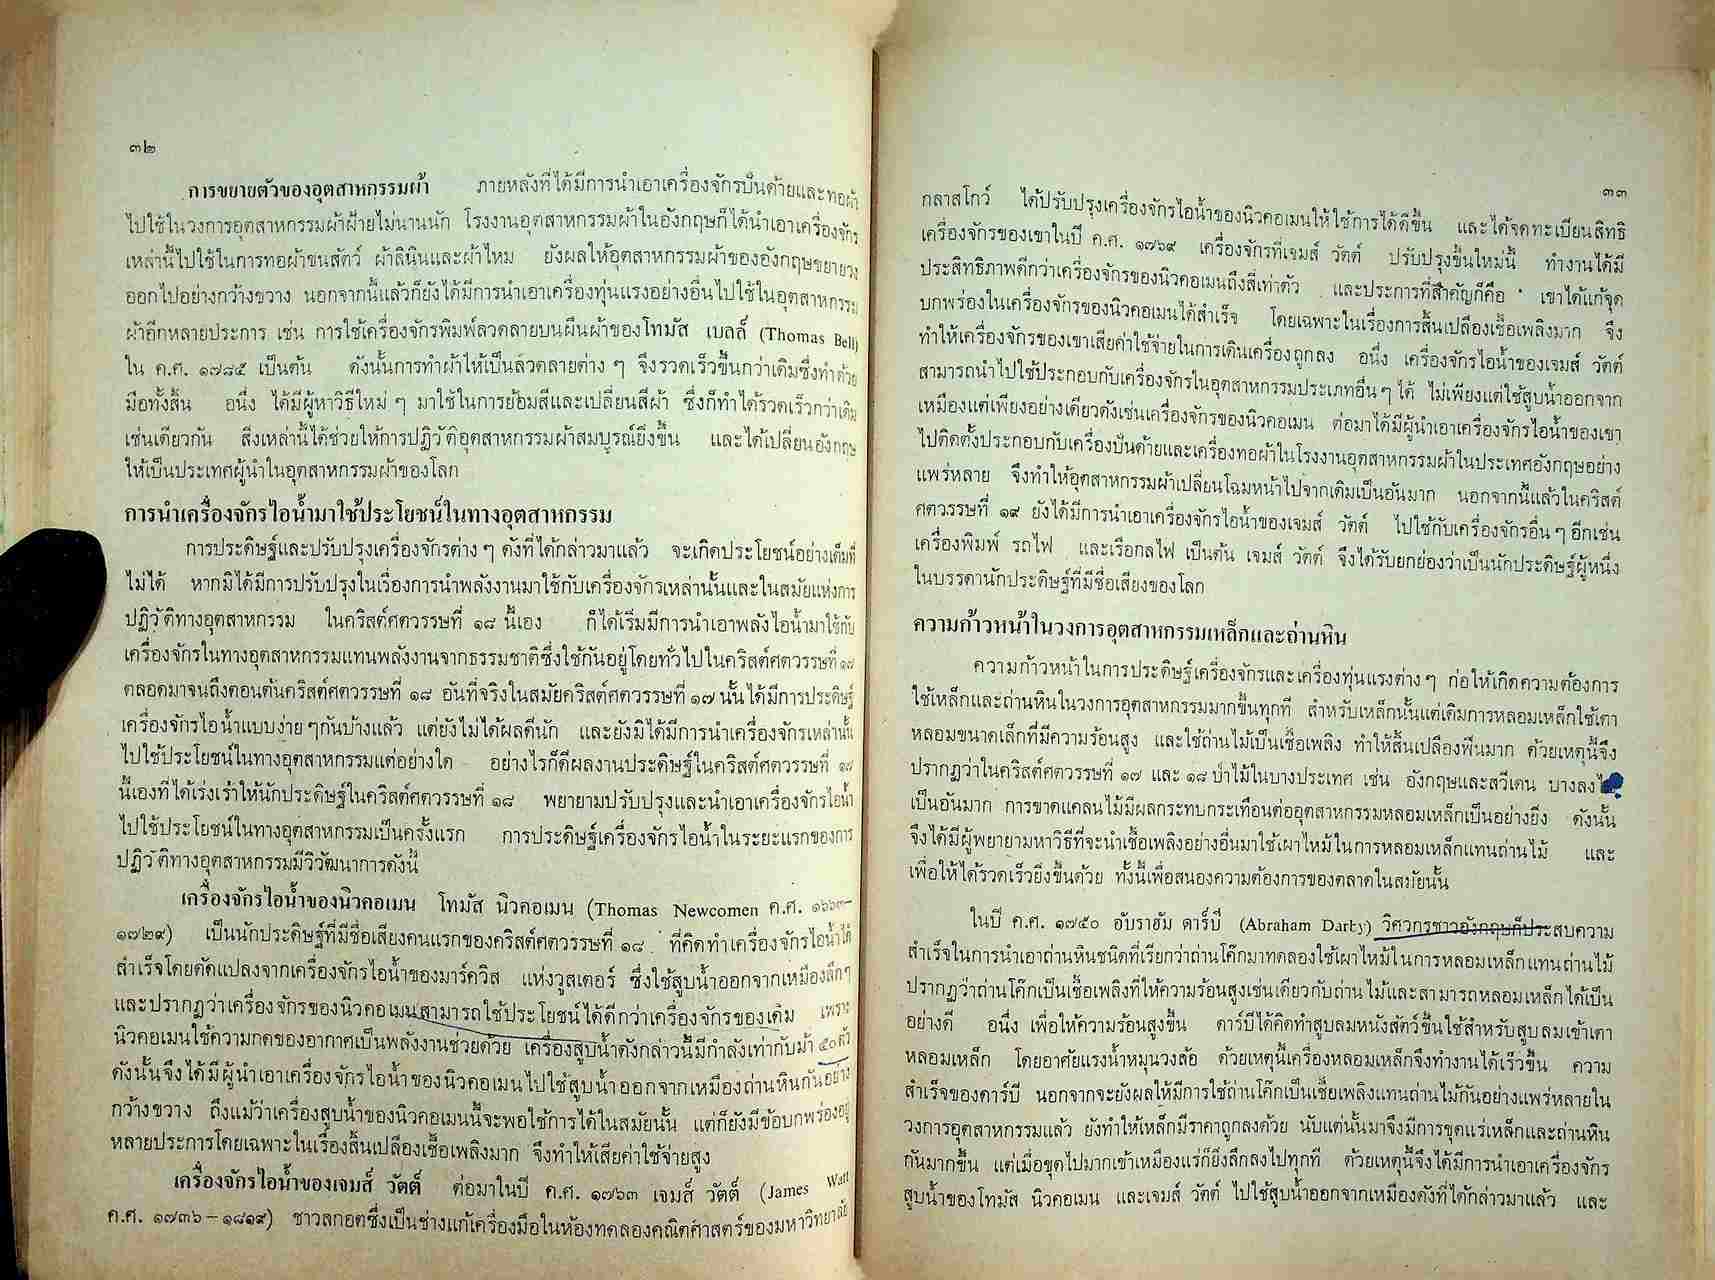 ๓๒
การขยายตัวของอุตสาหกรรมผ้า ภายหลังที่ได้มีการนำเอาเครื่องจักรปั่นด้ายและทอผ้า
ไปใช้ในวงการอุตสาหกรรมผ้าฝ้ายไม่นานนัก โรงงานอุตสาหกรรมผ้าในอังกฤษก็ได้นำเอาเครื่องจักร
เหล่านี้ไปใช้ในการทอผ้าขนสัตว์ ผ้าลินินและผ้าไหม ยังผลให้อุตสาหกรรมผ้าของอังกฤษขยายวง
ออกไปอย่างกว้างขวาง นอกจากนี้แล้วก็ยังได้มีการนำเอาเครื่องทุ่นแรงอย่างอื่นไปใช้ในอุตสาหกรรม
ผ้าอีกหลายประการ เช่น การใช้เครื่องจักรพิมพ์ลวดลายบนผืนผ้าของโทมัส เบลล์ (Thomas Bell)
ใน ค.ศ. ๑๗๘๕ เป็นต้น ดังนั้นการทำผ้าให้เป็นลวดลายต่าง ๆ จึงรวดเร็วขึ้นกว่าเดิมซึ่งทำด้วย
มือทั้งสิ้น อนึ่ง ได้มีผู้หาวิธีใหม่ ๆ มาใช้ในการย้อมสีและเปลี่ยนสีผ้า ซึ่งก็ทำได้รวดเร็วกว่าเดิม
เช่นเดียวกัน สิ่งเหล่านี้ได้ช่วยให้การปฏิวัติอุตสาหกรรมผ้าสมบูรณ์ยิ่งขึ้น และได้เปลี่ยนอังกฤษ
ให้เป็นประเทศผู้นำในอุตสาหกรรมผ้าของโลก
การนำเครื่องจักรไอน้ำมาใช้ประโยชน์ในทางอุตสาหกรรม
การประดิษฐ์และปรับปรุงเครื่องจักรต่าง ๆ ดังที่ได้กล่าวมาแล้ว จะเกิดประโยชน์อย่างเต็มที่
ไม่ได้ หากมิได้มีการปรับปรุงในเรื่องการนำพลังงานมาใช้กับเครื่องจักรเหล่านั้นและในสมัยแห่งการ
ปฏิวัติทางอุตสาหกรรม ในคริสต์ศตวรรษที่ ๑๘ นี้เอง ก็ได้เริ่มมีการนำเอาพลังไอน้ำมาใช้กับ
เครื่องจักรในทางอุตสาหกรรมแทนพลังงานจากธรรมชาติซึ่งใช้กันอยู่โดยทั่วไปในคริสต์ศตวรรษที่ ๑๗
ตลอดมาจนถึงตอนต้นคริสต์ศตวรรษที่ ๑๘ อันที่จริงในสมัยคริสต์ศตวรรษที่ ๑๗ นั้นได้มีการประดิษฐ์
เครื่องจักรไอน้ำแบบง่าย ๆกันบ้างแล้ว แต่ยังไม่ได้ผลดีนัก และยังมิได้มีการนำเครื่องจักรเหล่านั้น
ไปใช้ประโยชน์ในทางอุตสาหกรรมแต่อย่างใด อย่างไรก็ดีผลงานประดิษฐ์ในคริสต์ศตวรรษที่ ๑๗
นี้เองที่ได้เร่งเร้าให้นักประดิษฐ์ในคริสต์ศตวรรษที่ ๑๘ พยายามปรับปรุงและนำเอาเครื่องจักรไอน้ำ
ไปใช้ประโยชน์ในทางอุตสาหกรรมเป็นครั้งแรก การประดิษฐ์เครื่องจักรไอน้ำในระยะแรกของการ
ปฏิวัติทางอุตสาหกรรมมีวิวัฒนาการดังนี้
เครื่องจักรไอน้ำของนิวคอเมน โทมัส นิวคอเมน (Thomas Newcomen ค.ศ. ๑๖๖๓–
๑๗๒๙) เป็นนักประดิษฐ์ที่มีชื่อเสียงคนแรกของคริสต์ศตวรรษที่ ๑๘ ที่คิดทำเครื่องจักรไอน้ำได้
สำเร็จโดยดัดแปลงจากเครื่องจักรไอน้ำของมาร์ควิส แห่งวูสเตอร์ ซึ่งใช้สูบน้ำออกจากเหมืองลึกๆ
และปรากฏว่าเครื่องจักรของนิวคอเมนสามารถใช้ประโยชน์ได้ดีกว่าเครื่องจักรของเดิม เพราะ
นิวคอเมนใช้ความกดของอากาศเป็นพลังงานช่วยด้วย เครื่องสูบน้ำดังกล่าวนี้มีกำลังเท่ากับม้า ๕๐ตัว
ดังนั้นจึงได้มีผู้นำเอาเครื่องจักรไอน้ำของนิวคอเมนไปใช้สูบน้ำออกจากเหมืองถ่านหินกันอย่าง
กว้างขวาง ถึงแม้ว่าเครื่องสูบน้ำของนิวคอเมนนี้จะพอใช้การได้ในสมัยนั้น แต่ก็ยังมีข้อบกพร่องอยู่
หลายประการโดยเฉพาะในเรื่องสิ้นเปลืองเชื้อเพลิงมาก จึงทำให้เสียค่าใช้จ่ายสูง
เครื่องจักรไอน้ำของเจมส์ วัตต์ ต่อมาในปี ค.ศ. ๑๗๖๓ เจมส์ วัตต์ (James Watt
ค.ศ. ๑๗๓๖–๑๘๑๙) ชาวสกอตซึ่งเป็นช่างแก้เครื่องมือในห้องทดลองคณิตศาสตร์ของมหาวิทยาลัย
๓๓
กลาสโกว์ ได้ปรับปรุงเครื่องจักรไอน้ำของนิวคอเมนให้ใช้การได้ดีขึ้น และได้จดทะเบียนสิทธิ
เครื่องจักรของเขาในปี ค.ศ. ๑๗๖๙ เครื่องจักรที่เจมส์ วัตต์ ปรับปรุงขึ้นใหม่นี้ ทำงานได้มี
ประสิทธิภาพดีกว่าเครื่องจักรของนิวคอเมนถึงสี่เท่าตัว และประการที่สำคัญก็คือ เขาได้แก้จุด
บกพร่องในเครื่องจักรของนิวคอเมนได้สำเร็จ โดยเฉพาะในเรื่องการสิ้นเปลืองเชื้อเพลิงมาก จึง
ทำให้เครื่องจักรของเขาเสียค่าใช้จ่ายในการเดินเครื่องถูกลง อนึ่ง เครื่องจักรไอน้ำของเจมส์ วัตต์
สามารถนำไปใช้ประกอบกับเครื่องจักรในอุตสาหกรรมประเภทอื่นๆ ได้ ไม่เพียงแต่ใช้สูบน้ำออกจาก
เหมืองแต่เพียงอย่างเดียวดังเช่นเครื่องจักรของนิวคอเมน ต่อมาได้มีผู้นำเอาเครื่องจักรไอน้ำของเขา
ไปติดตั้งประกอบกับเครื่องปั่นด้ายและเครื่องทอผ้าในโรงงานอุตสาหกรรมผ้าในประเทศอังกฤษอย่าง
แพร่หลาย จึงทำให้อุตสาหกรรมผ้าเปลี่ยนโฉมหน้าไปจากเดิมเป็นอันมาก นอกจากนี้แล้วในคริสต์
ศตวรรษที่ ๑๙ ยังได้มีการนำเอาเครื่องจักรไอน้ำของเจมส์ วัตต์ ไปใช้กับเครื่องจักรอื่นๆ อีกเช่น
เครื่องพิมพ์ รถไฟ และเรือกลไฟ เป็นต้น เจมส์ วัตต์ จึงได้รับยกย่องว่าเป็นนักประดิษฐ์ผู้หนึ่ง
ในบรรดานักประดิษฐ์ที่มีชื่อเสียงของโลก
ความก้าวหน้าในวงการอุตสาหกรรมเหล็กและถ่านหิน
ความก้าวหน้าในการประดิษฐ์เครื่องจักรและเครื่องทุ่นแรงต่างๆ ก่อให้เกิดความต้องการ
ใช้เหล็กและถ่านหินในวงการอุตสาหกรรมมากขึ้นทุกที สำหรับเหล็กนั้นแต่เดิมการหลอมเหล็กใช้เตา
หลอมขนาดเล็กที่มีความร้อนสูง และใช้ถ่านไม้เป็นเชื้อเพลิง ทำให้สิ้นเปลืองฟืนมาก ด้วยเหตุนี้จึง
ปรากฏว่าในคริสต์ศตวรรษที่ ๑๗ และ ๑๘ ป่าไม้ในบางประเทศ เช่น อังกฤษและสวีเดน บางลงไป
เป็นอันมาก การขาดแคลนไม้มีผลกระทบกระเทือนต่ออุตสาหกรรมหลอมเหล็กเป็นอย่างยิ่ง ดังนั้น
จึงได้มีผู้พยายามหาวิธีที่จะนำเชื้อเพลิงอย่างอื่นมาใช้เผาไหม้ในการหลอมเหล็กแทนถ่านไม้ และ
เพื่อให้ได้รวดเร็วยิ่งขึ้นด้วย ทั้งนี้เพื่อสนองความต้องการของตลาดในสมัยนั้น
ในปี ค.ศ. ๑๗๕๐ อับราฮัม ดาร์บี (Abraham Darby) วิศวกรชาวอังกฤษก็ประสบความ
สำเร็จในการนำเอาถ่านหินชนิดที่เรียกว่าถ่านโค๊กมาทดลองใช้เผาไหม้ในการหลอมเหล็กแทนถ่านไม้
ปรากฏว่าถ่านโค๊กเป็นเชื้อเพลิงที่ให้ความร้อนสูงเช่นเดียวกับถ่านไม้และสามารถหลอมเหล็กได้เป็น
อย่างดี อนึ่ง เพื่อให้ความร้อนสูงขึ้น ดาร์บีได้คิดทำสูบลมหนังสัตว์ขึ้นใช้สำหรับสูบลมเข้าเตา
หลอมเหล็ก โดยอาศัยแรงน้ำหมุนวงล้อ ด้วยเหตุนี้เครื่องหลอมเหล็กจึงทำงานได้เร็วขึ้น ความ
สำเร็จของดาร์บี นอกจากจะยังผลให้มีการใช้ถ่านโค๊กเป็นเชื้อเพลิงแทนถ่านไม้กันอย่างแพร่หลายใน
วงการอุตสาหกรรมแล้ว ยังทำให้เหล็กมีราคาถูกลงด้วย นับแต่นั้นมาจึงมีการขุดแร่เหล็กและถ่านหิน
กันมากขึ้น แต่เมื่อขุดไปมากเข้าเหมืองแร่ก็ยิ่งลึกลงไปทุกที ด้วยเหตุนี้จึงได้มีการนำเอาเครื่องจักร
สูบน้ำของโทมัส นิวคอเมน และเจมส์ วัตต์ ไปใช้สูบน้ำออกจากเหมืองดังที่ได้กล่าวมาแล้ว และ